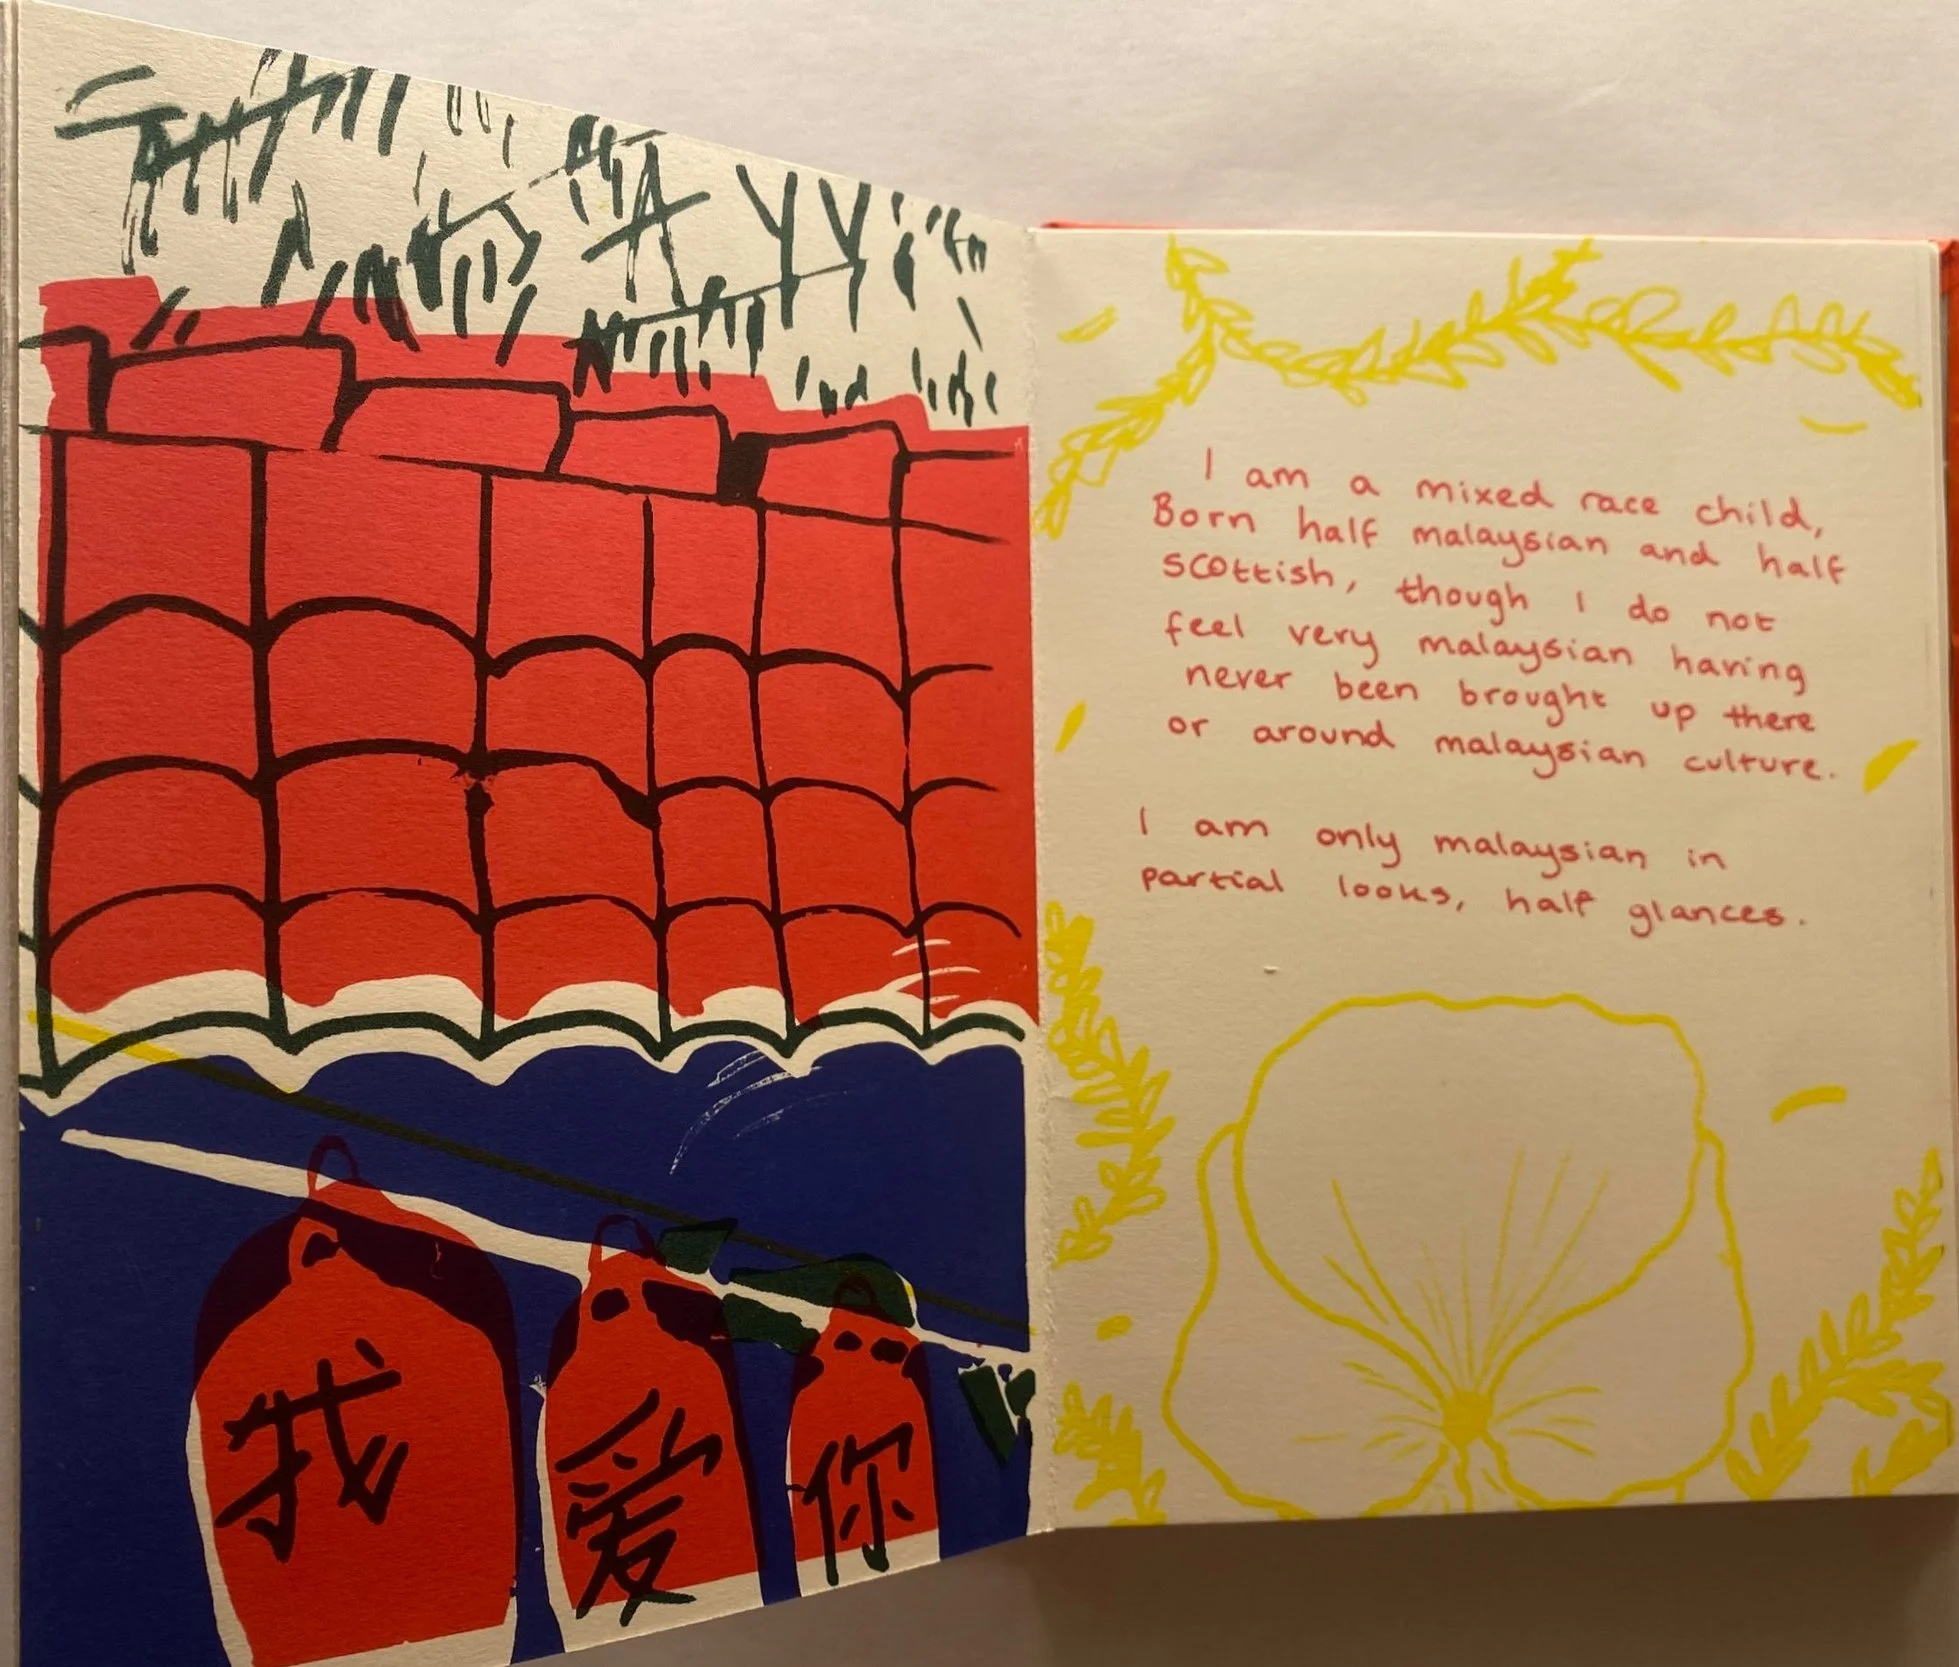 我 爱 你
I am a mixed race child,
Born half malaysian and half
scottish, though I do not
feel very malaysian having
never been brought up there
or around malaysian culture.
I am only malaysian in
partial looks, half glances.